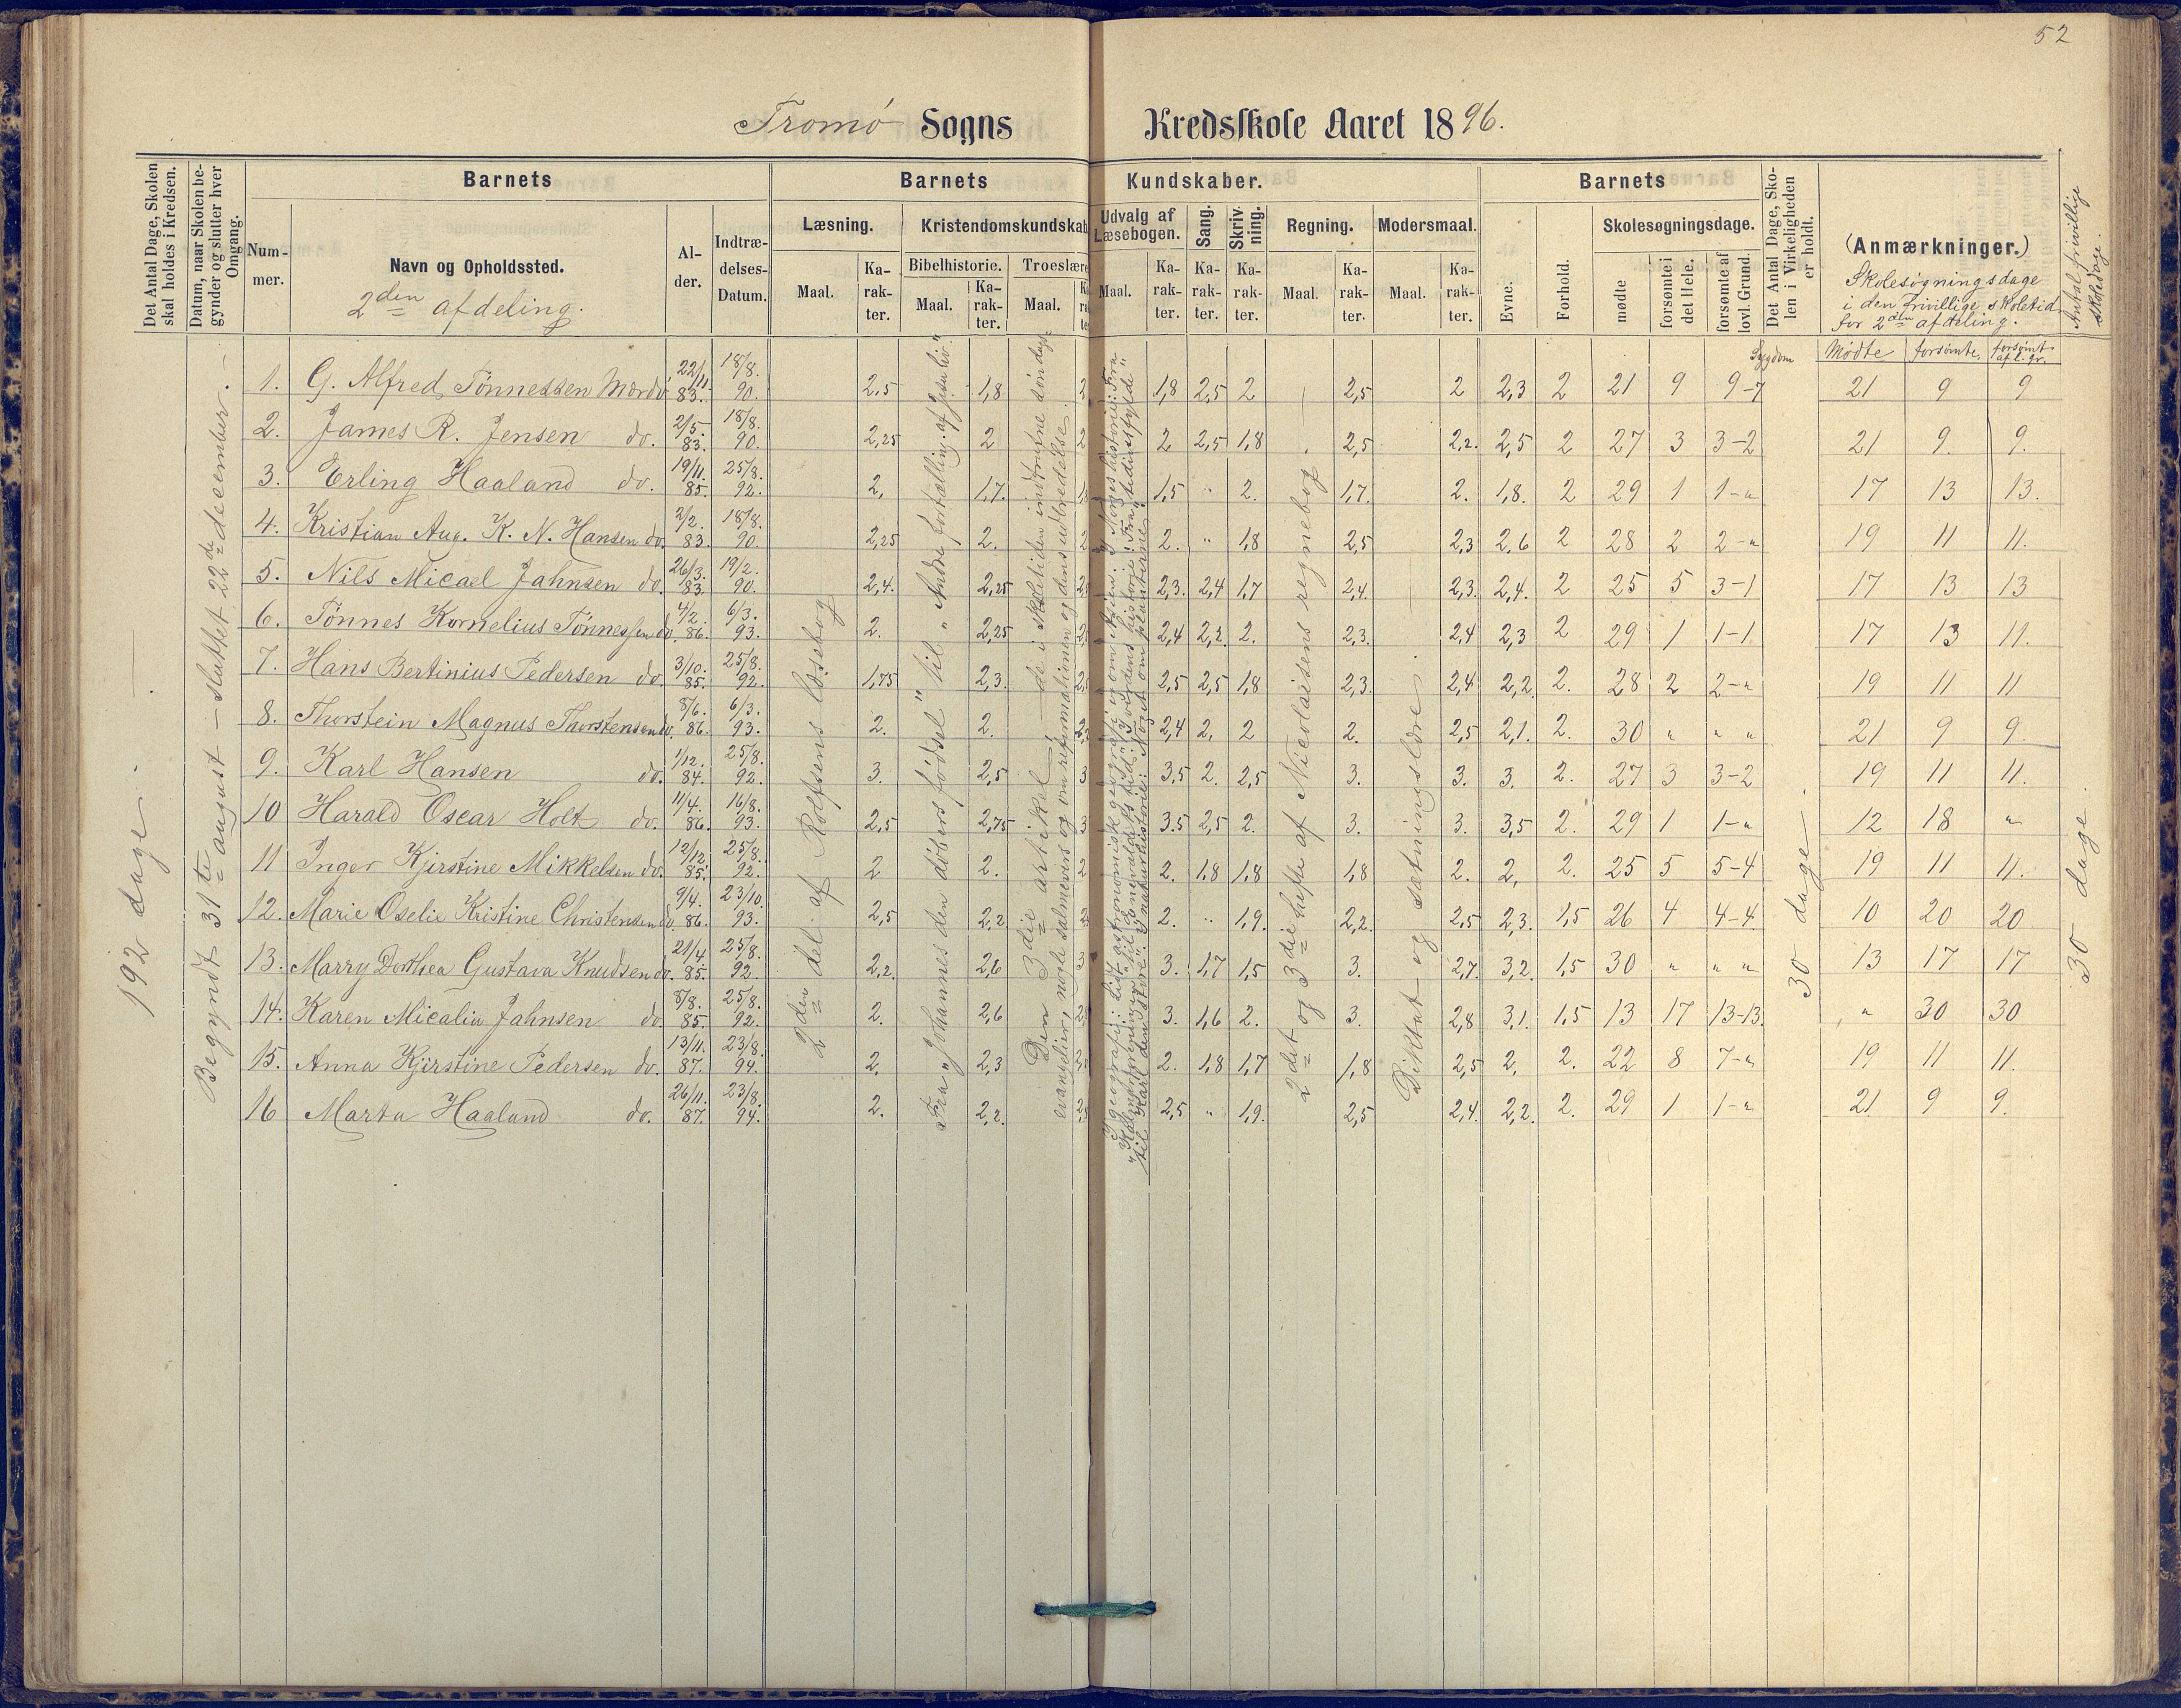 52
Tromø Sogns Kredsskole Aaret 1896.
Det Antal Dage, Skolen skal holdes i Kredsen.
Datum, naar Skolen begynder og slutter hver Omgang.
Barnets
Barnets Kundskaber.
Barnets
Det Antal Dage, Skolen i Virkeligheden er holdt.
(Anmærkninger.)
Skolesøgningsdage
i den frivillige skoletid
for 2den afdeling.
Antal frivillige skoledage.
Nummer.
Navn og Opholdssted.
2den afdeling.
Alder.
Indtrædelses-Datum.
Læsning.
Kristendomskundskab
Udvalg af Læsebogen.
Sang.
Skrivning.
Regning.
Modersmaal.
Evne.
Forhold.
Skolesøgningsdage.
Bibelhistorie.
Troeslære
Maal.
Karakter.
Maal.
Karakter.
Maal.
Maal.
Karakter.
Karakter.
Karakter.
Maal.
Karakter.
Maal.
Karakter.
mødte
forsømte i det Hele.
forsømte af lovl. Grund.
Sygdom
Mødte
forsømte
forsømt af l. gr.
192 dage.
Begyndt 31te august – sluttet 22de december.
2den del af Rolfsens læsebog
Fra „Johannes den døbers fødsel" til „Andre fortælling. af Jesu liv"
Den 3die artikel, de i skoletiden indtrufne søndags
evangelier, nogle salmevers og om reformationen og dens udbredelse.
2det og 3die hefte af Nicolaisens regnebog
Diktat og sætningslære.
30 dage.
30 dage.
1. G. Alfred Tønnessen Mærdø 22/11 83. 18/8. 90. 2,5 1,8 2 1,8 2,5 2 2,5 2 2,3 2 21 9 9-7 21 9 9
2. James R. Jensen do. 2/5. 83. 18/8. 90. 2,25 2 2 2 2,5 1,8 2,5 2,2. 2,5 2 27 3 3-2 21 9. 9.
3. Erling Haaland do. 19/11. 85. 25/8. 92. 2, 1,7. 1,5 " 2. 1,7. 2. 1,8. 2 29 1 1-" 17 13 13.
4. Kristian Aug. K. N. Hansen do. 2/2. 83. 18/8. 90. 2,25 2. 2 2. " 1,8 2,5 2,3 2,6 2 28 2 2-" 19 11 11.
5. Nils Micael Jahnsen do. 26/3. 83. 19/2. 90. 2,4. 2,25 2,3. 2,4 1,7 2,4. 2,3. 2,4. 2 25 5 3-1 17 13 13
6. Tønnes Kornelius Tønnessen do. 4/2. 86. 6/3. 93. 2. 2,25 2,4 2,2. 2. 2,3. 2,4 2,3 2 29 1 1-1 17 13 11.
7. Hans Bertinius Pedersen do. 3/10. 85. 25/8. 92. 1,75 2,3. 2,5 2,5 1,8 2,3. 2,4 2,2. 2. 28 2 2-" 19 11 11
8. Thorstein Magnus Thorstensen do. 8/6. 86. 6/3. 93. 2. 2. 2,4 2, 2 2. 2,5 2,1. 2. 30 " " " 21 9 9.
9. Karl Hansen do. 1/12. 84. 25/8. 92. 3. 2,5 3 3,5 2. 2,5 3. 3. 3. 2. 27 3 3-2 19 11 11.
10 Harald Oscar Holt do. 11/4. 86. 16/8. 93. 2,5 2,75 3 3.5 2,5 2. 3. 3. 3,5 2. 29 1 1-" 12 18 "
11 Inger Kjirstine Mikkelsen do. 12/12. 85. 25/8. 92. 2 2. 2 2. 1,8 1,8 1,8 2. 2, 2. 25 5 5-4 19 11 11.
12. Marie Oselie Kristine Christensen do. 9/4. 86. 23/10. 93. 2,5 2,2 2. " 1,9. 2,2. 2,5 2,3. 1,5 26 4 4-4 10 20 20
13. Marry Dorthea Gustava Knudsen do. 21/4. 85. 25/8. 92. 2,2. 2,6 3 3. 1,7 1,5 3. 2,7. 3,2. 1,5 30 " " " 13 17 17
14. Karen Micalia Jahnsen do. 8/8. 85. 25/8. 92. 2. 2,6 3. 1,6 2. 3. 2,8 3,1. 1,5 13 17 13-13. " 30 30
15. Anna Kjirstine Pedersen do. 13/11. 87. 23/8. 94. 2. 2,3 2. 1,8 1,7 1,8 2,5 2, 2. 22 8 7-" 19 11 11.
16 Marta Haaland do. 26/11. 87. 23/8. 94. 2. 2,2. 2,5 " 1,9. 2,5 2,4. 2,2. 2. 29 1 1-" 21 9 9.